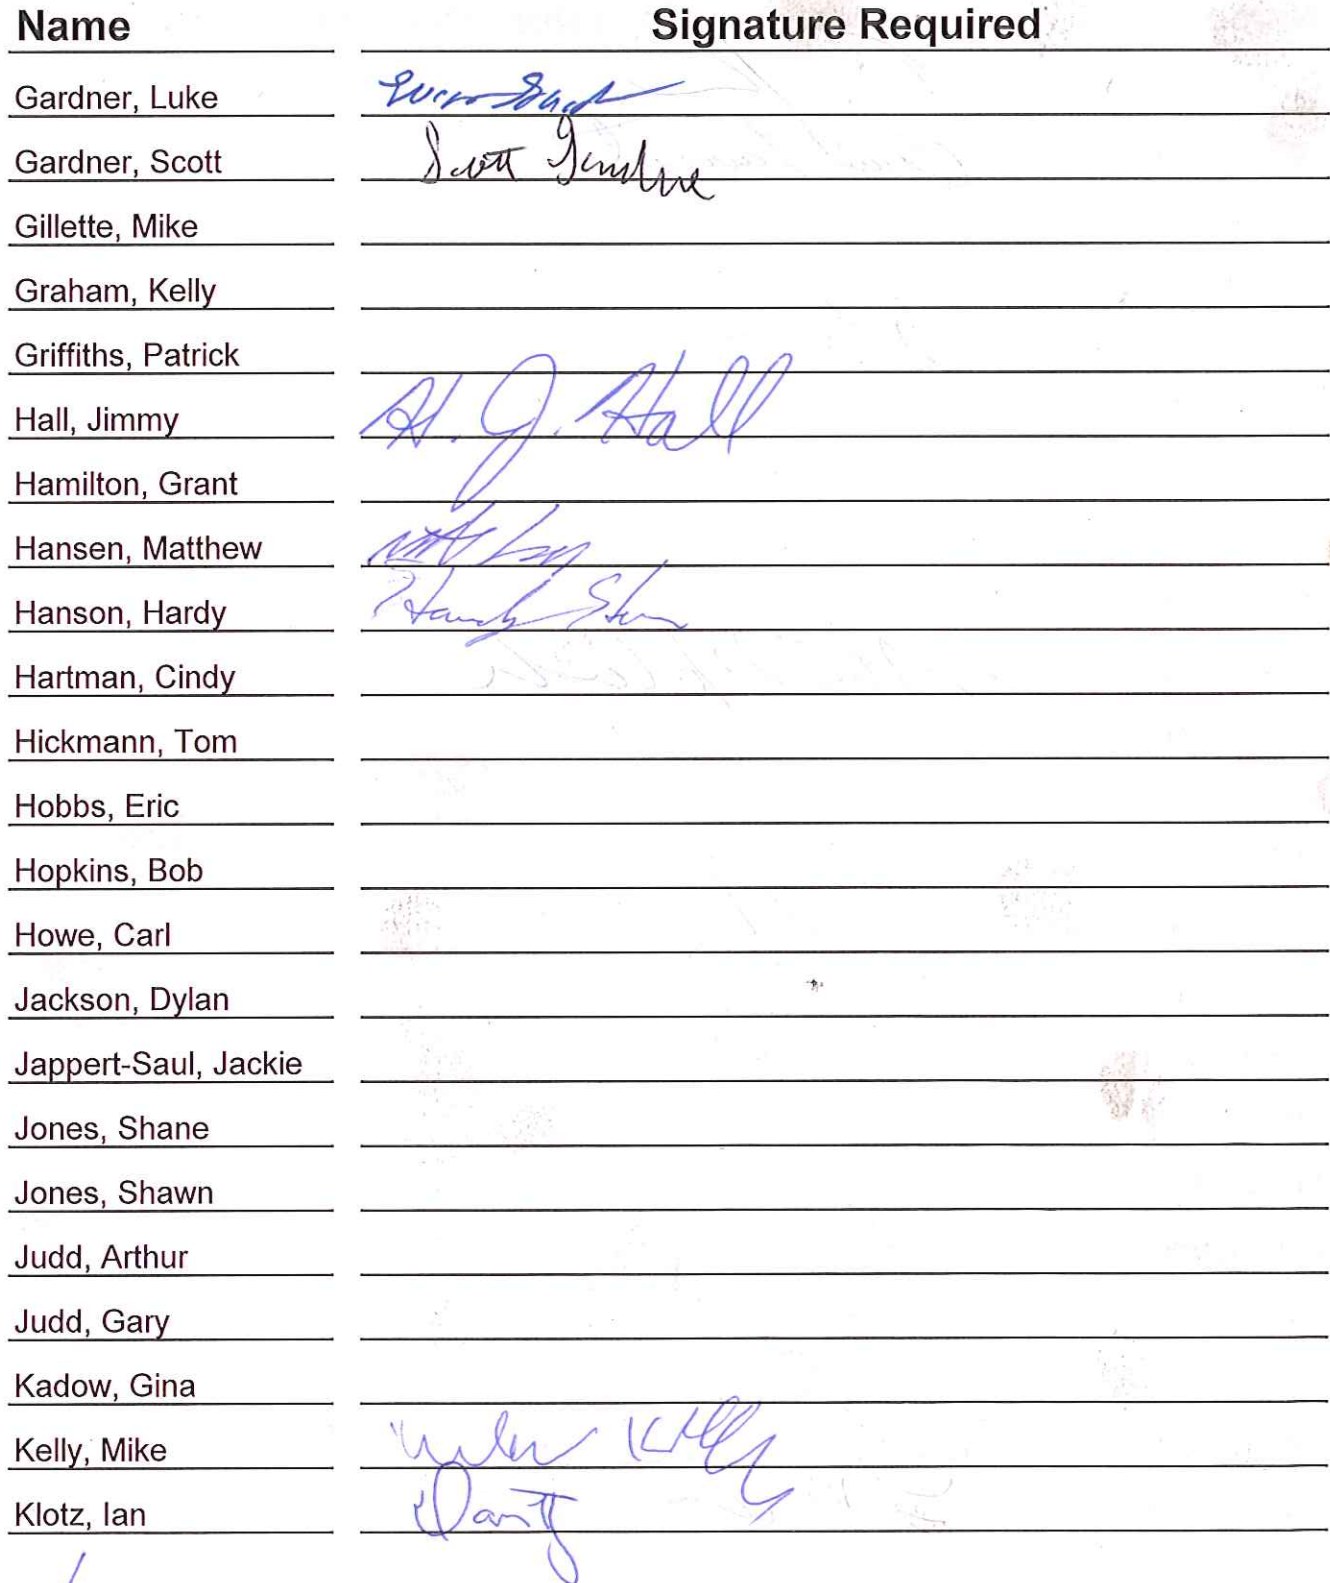 Name Signature Required
Gardner, Luke
Gardner, Scott Scott Gardner
Gillette, Mike
Graham, Kelly
Griffiths, Patrick
Hall, Jimmy H. J. Hall
Hamilton, Grant
Hansen, Matthew
Hanson, Hardy Hardy
Hartman, Cindy
Hickmann, Tom
Hobbs, Eric
Hopkins, Bob
Howe, Carl
Jackson, Dylan
Jappert-Saul, Jackie
Jones, Shane
Jones, Shawn
Judd, Arthur
Judd, Gary
Kadow, Gina
Kelly, Mike Kelly
Klotz, Ian